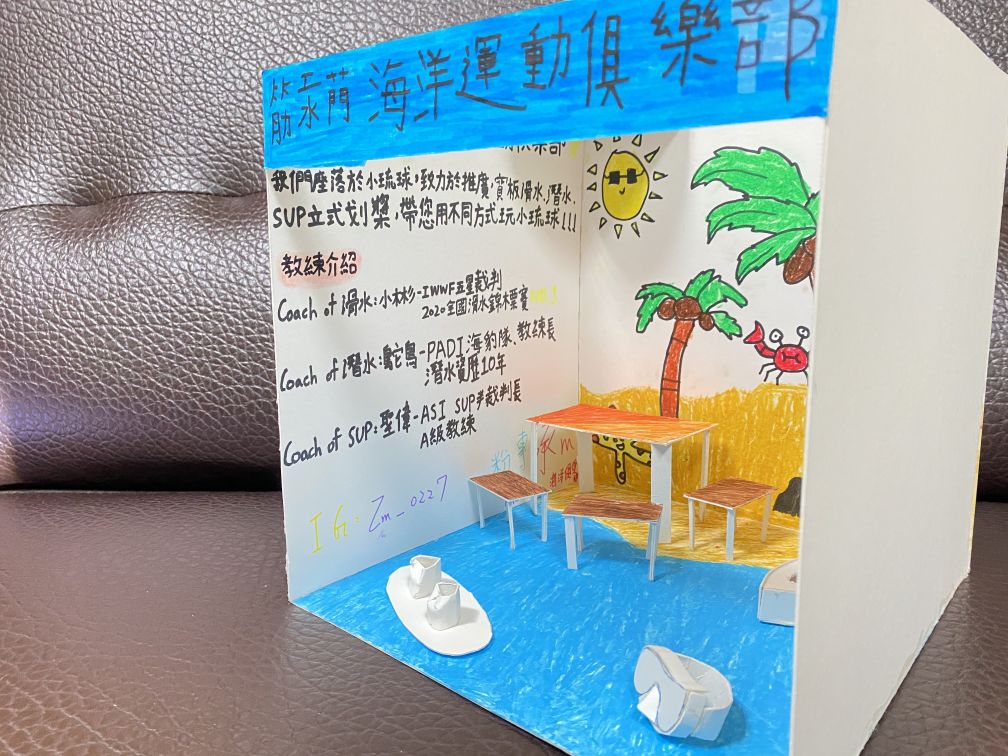 海洋運動俱樂部
我們座落於小琉球，致力於推廣，寬板滑水、潛水、
SUP立式划槳，帶您用不同方式玩小琉球!!!
教練介紹
Coach of 滑水:小林杉-IWWF五星裁判
2020全國滑水錦標賽
Coach of 潛水:鴕鳥-PADI海豹隊、教練長
潛水資歷10年
Coach of SUP:聖偉-ASI SUP 裁判長
A級教練
IG: Zm_0227
粉專